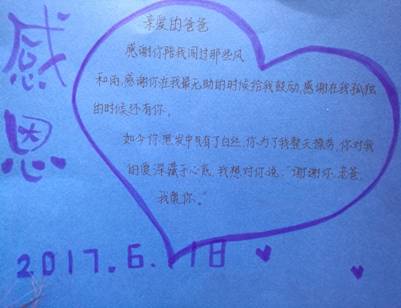 感恩
亲爱的爸爸
感谢你陪我闯过那些风
和雨,感谢你在我最无助的时候给我鼓励,感谢在我孤独
的时候还有你,
如今你黑发中夹有了白丝,你为了我整天操劳,你对我
的爱深藏于心底,我想对你说:"谢谢你,老爸,
我爱你。"
2017.6.11日